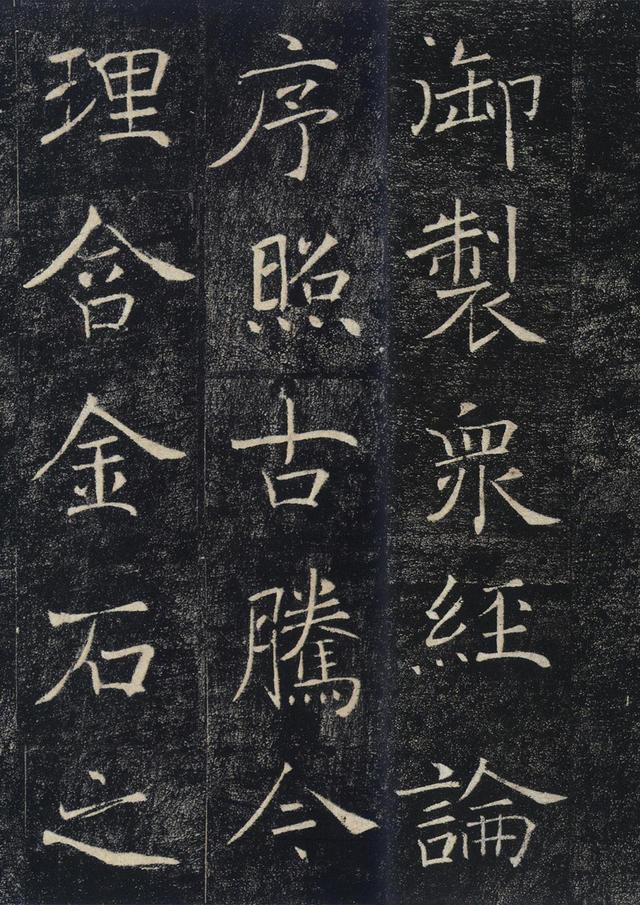 御製衆經論
序照古騰今
理含金石之